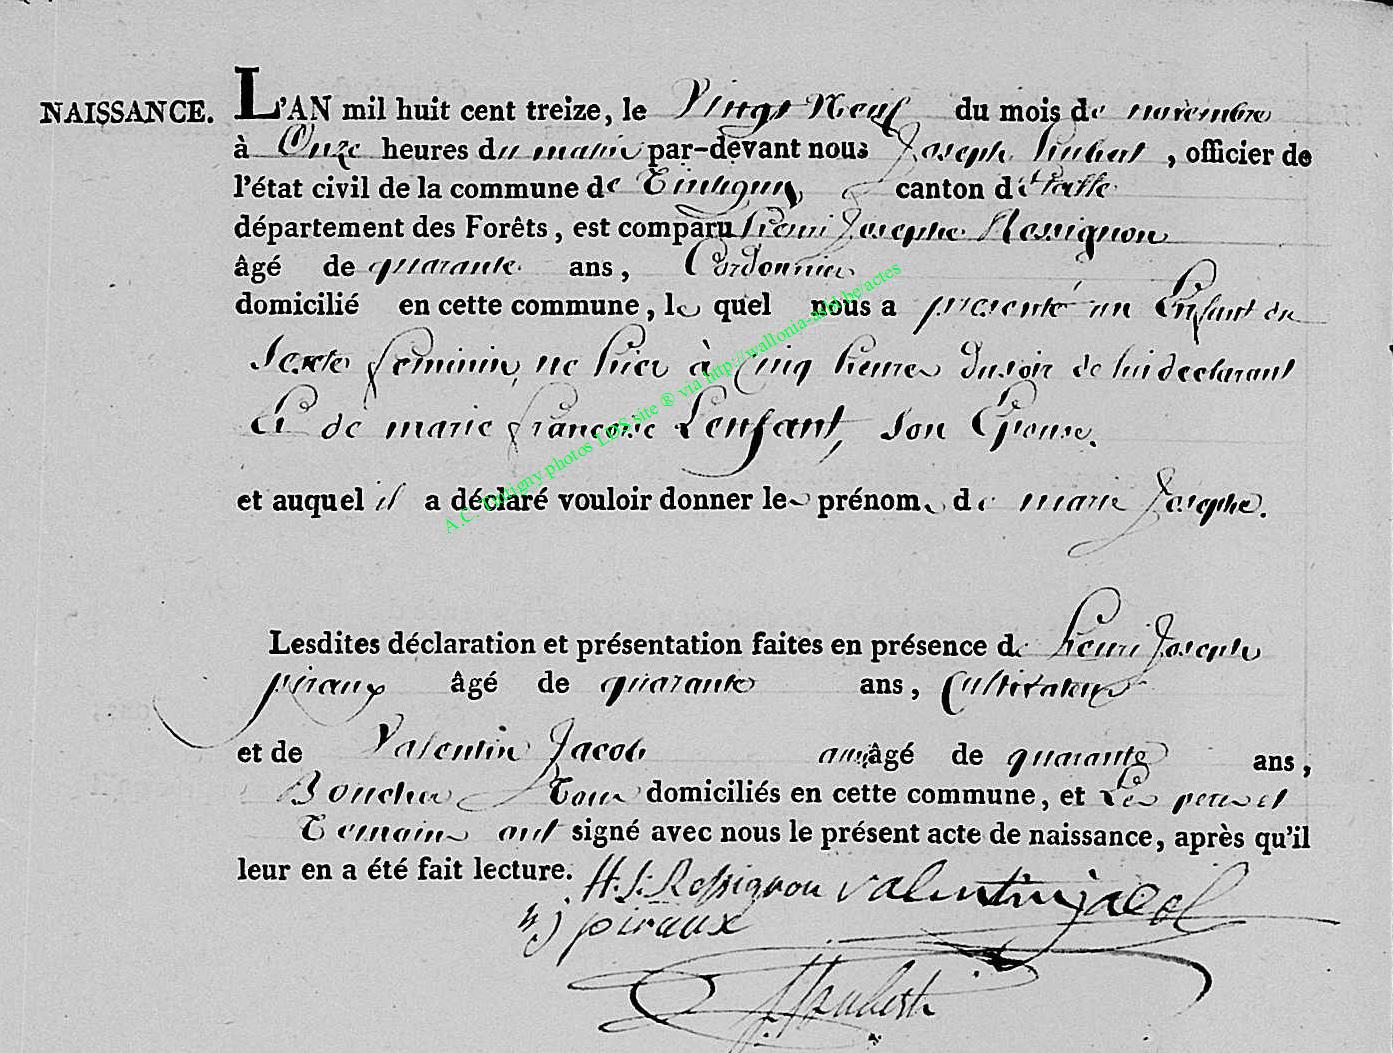 NAISSANCE. L'AN mil huit cent treize, le Vingt Neuf du mois de novembre
à Onze heures du matin par-devant nous Joseph hubert, officier de
l'état civil de la commune de Tintigny canton d'Etalle
département des Forêts, est comparu henri Josephe Rossignon
âgé de quarante ans, Cordonnier
domicilié en cette commune, le quel nous a presenté un Enfant du
Sexte feminin, ne hier à Cinq heures Du soir de lui declarant
Et de marie françoise Lenfant, son Epouse.
et auquel il a déclaré vouloir donner les prénoms de marie Josephe.
Lesdites déclaration et présentation faites en présence de henri Joseph
piraux âgé de quarante ans, Cultivateur
et de Valentin Jacob aussi âgé de quarante ans,
Boucher Tous domiciliés en cette commune, et Les pere et
Temoins ont signé avec nous le présent acte de naissance, après qu'il
leur en a été fait lecture.
H. J. Rossignon valentin jacob
h j piraux
J. hubert
A.C. Tintigny photos LDS site ® via http://wallonia-asbl.be/actes